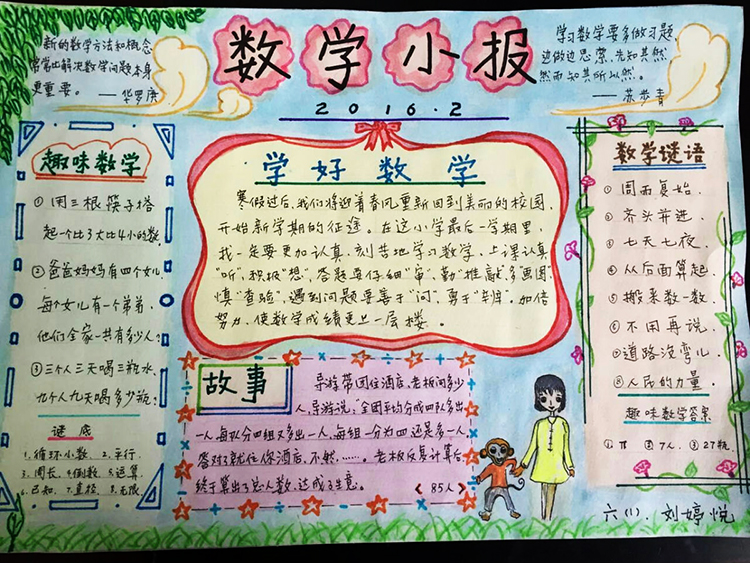 数学小报
2016.2
新的数学方法和概念
常常比解决数学问题本身
更重要。——华罗庚
学习数学要多做习题,
边做边思索,先知其然
然而知其所以然。
——苏步青
趣味数学
①用三根筷子搭
起一个比3大比4小的数
②爸爸妈妈有四个女儿
每个女儿有一个弟弟,
他们全家一共有多少人?
③三个人三天喝三瓶水,
九个人九天喝多少瓶?
谜底
1.循环小数 2.平行.
3.周长.4.倒数.5.运算
6.已知.7.直径.8.无限
学好数学
寒假过后,我们将迎着春风重新回到美丽的校园,
开始新学期的征途。在这小学最后一学期里,
我一定要更加认真、刻苦地学习数学,上课认真
"听",积极"想",答题要仔细"审",勤"推敲",多"画图"
慎"查验",遇到问题要善于"问",勇于"辩"。加倍
努力,使数学成绩更上一层楼。
故事
导游带团住酒店,老板问多少
人,导游说,"全团平均分成四队多出
一人,每队分四组又多出一人,每组一分为四还是多一人
答对了就住你酒店,不然……。老板反复计算后
终于算出了总人数,达成了生意。 《85人》
数学谜语
①周而复始.
②齐头并进.
③七天七夜.
④从后面算起.
⑤搬来数一数.
⑥不用再说.
⑦道路没弯儿.
⑧人民的力量.
趣味数学答案
①π ②7人. ③27瓶
六(1). 刘婷悦